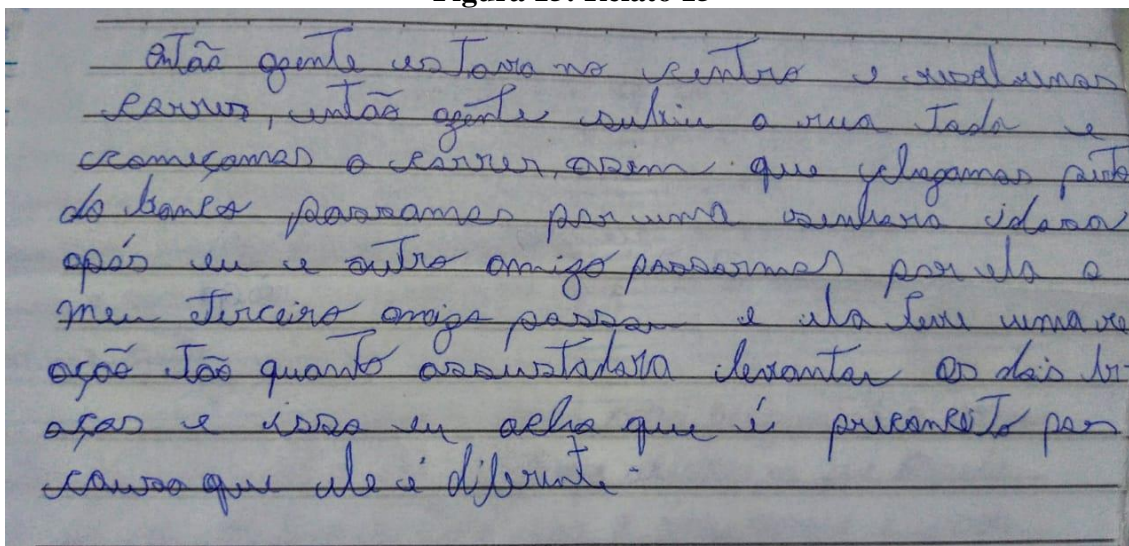 então agente estava no centro e resolvemos
correr, então agente subiu a rua toda e
começamos a correr, asem que chegamos perto
do banco passamos por uma senhora idosa
após eu e outro amigo passarmos por ela o
meu terceiro amigo passou e ela teve uma re
ação tão quanto assustadora levantar os dois br
aços e isso eu acho que é preconceito por
causo que ele é diferente.